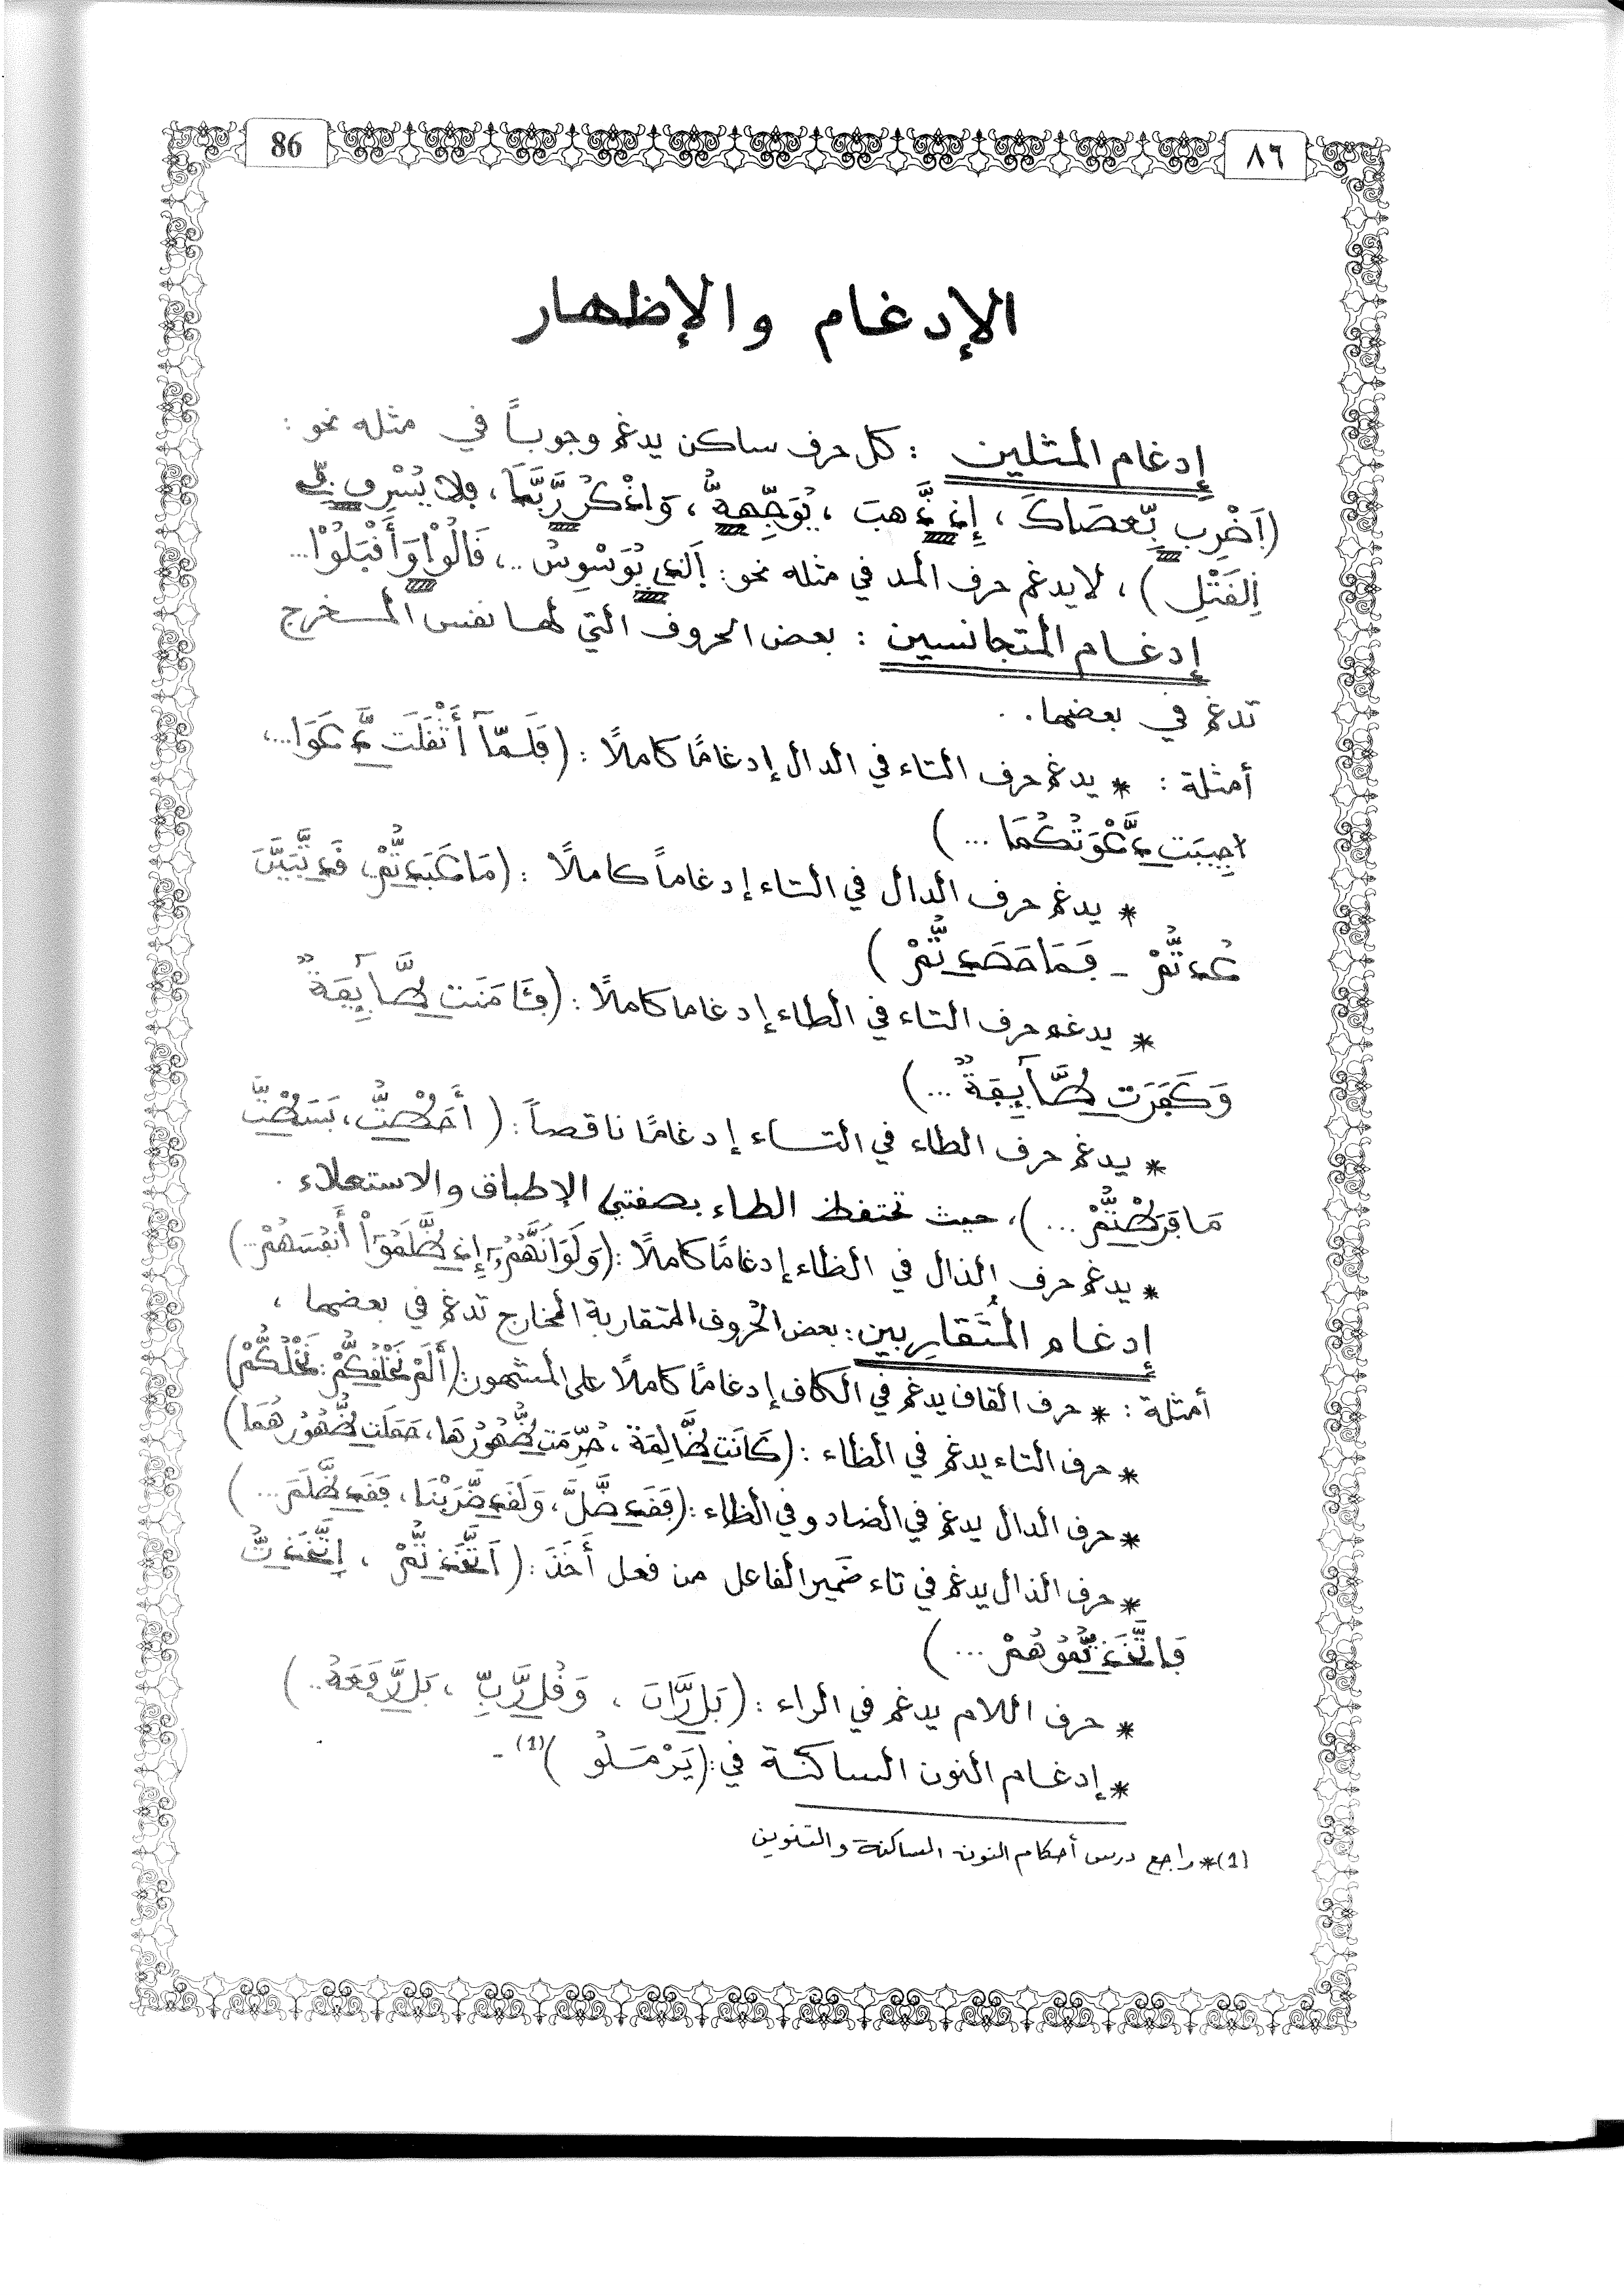 86
٨٦
الإدغام والإظهار
إدغام المثلين : كل حرف ساكن يدغم وجوباً في مثله نحو :
(اَضْرِب بِّعَصَاكَ ، إِذ ذَّهَبَ ، يُوَجِّههُّ ، وَاذْكُر رَّبَّكَ ، فلا يُسْرِف فِّي
اِلقَتْلِ ) ، لا يدغم حرف المد في مثله نحو : اَلذِي يُوَسْوِسُ .. ، قَالُواْ وَأَقْبَلُواْ ...
إدغام المتجانسين : بعض الحروف التي لها نفس المخرج
تدغم في بعضها . .
أمثلة : * يدغم حرف التاء في الدال إدغامًا كاملًا : (فَلَمَّآ أَثْقَلَت دَّعَوَا ... ،
اجِيبَت دَّعْوَتُكُمَا ... )
* يدغم حرف الدال في التاء إدغاماً كاملًا : (مَا عَبَدتُّمْ ، قَد تَّبَيَّنَ
عُدتُّمْ - فَمَا حَصَدتُّمْ )
* يدغم حرف التاء في الطاء إدغاما كاملًا : (فَـَٔامَنَت طَّآئِفَةٌ
وَكَفَرَت طَّآئِفَةٌ ... )
* يدغم حرف الطاء في التاء إدغامًا ناقصاً : ( أَحَطْتُّ ، بَسَطْتَّ
مَا فَرَّطْتُّمْ ... ) ، حيث تحتفظ الطاء بصفتي الإطباق والاستعلاء .
* يدغم حرف الذال في الظاء إدغامًا كاملًا : (وَلَوَ اَنَّهُمُۥٓ إِذ ظَّلَمُوٓاْ أَنفُسَهُمْ ... )
إدغام المُتَقارِبين : بعض الحُروف المتقاربة المخارج تدغم في بعضها ،
أمثلة : * حرف القاف يدغم في الكاف إدغامًا كاملًا على المشهور : (أَلَمْ نَخْلُقكُّمْ : نَخْلُكُّمْ)
* حرف التاء يدغم في الظاء : (كَانَت ظَّالِمَةً ، حُرِّمَت ظُّهُورُهَا ، حَمَلَت ظُّهُورُهُمَا )
* حرف الدال يدغم في الضاد وفي الظاء : (فَقَد ضَّلَّ ، وَلَقَد ضَّرَبْنَا ، فَقَد ظَّلَمَ ... )
* حرف الذال يدغم في تاء ضمير الفاعل من فعل أَخَذَ : ( اَتَّخَذتُّمْ ، إِتَّخَذتُّ
فَاتَّخَذتُّمُوهُمْ ... )
* حرف اللام يدغم في الراء : (بَل رَّانَ ، وَقُل رَّبِّ ، بَل رَّفَعَهُ .. )
* إدغام النون الساكنة في : (يَرْمَلُو )(1) -
(1) * راجع درس أحكام النون الساكنة والتنوين